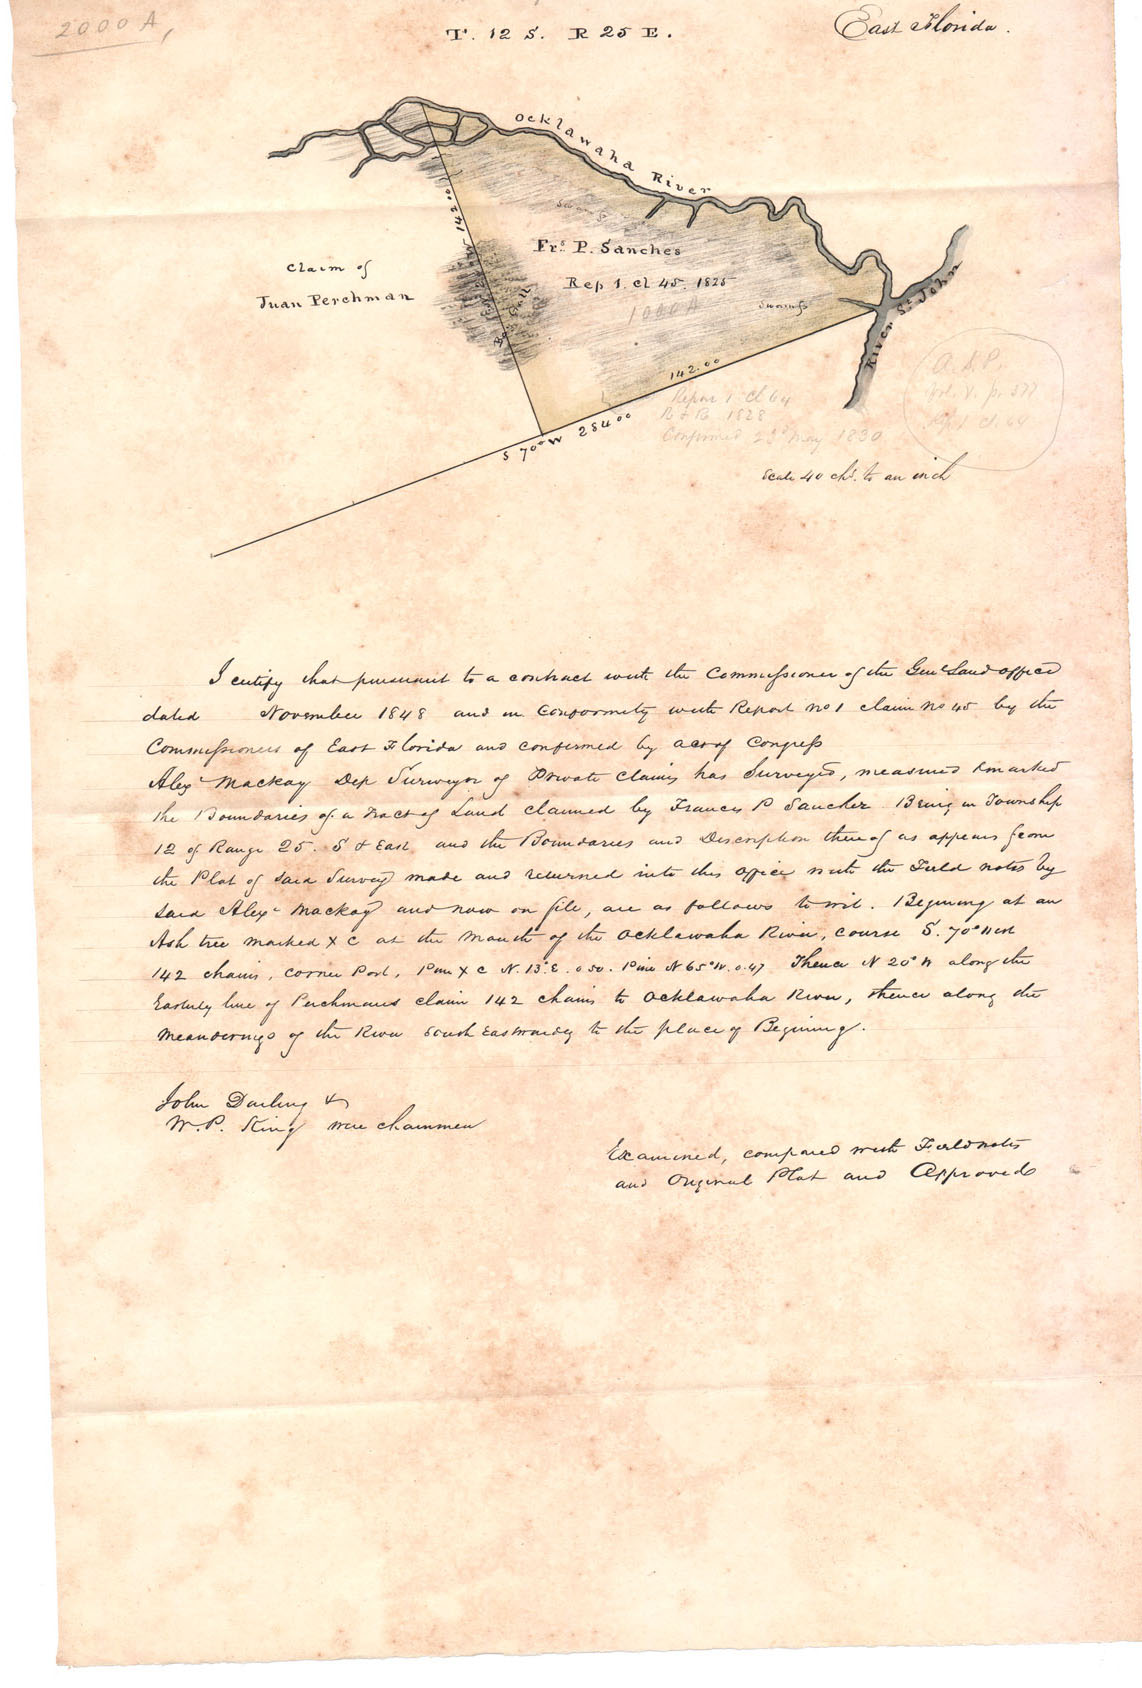 2000 A,
T. 12 S. R 25 E.
East Florida.
Ocklawaha River
Swamp
Frs. P. Sanches
Rep 1. cl 45. 1825
1000 A
Swamp
Claim of
Juan Perchman
W 142.00
Bay Gall
River St John
142.00
S 70° W 284.00
Report 1 cl 64
R & R 1828
Confirmed 23d May 1830
A. S. P.
Vol. V. p. 377
cl. 64
Scale 40 chs. to an inch
I certify that pursuant to a contract with the Commissioner of the Genl Land office
dated November 1848 and in conformity with Report no 1 claim no 45 by the
Commissioners of East Florida and confirmed by act of Congress
Alexr Mackay Dep Surveyor of Private claims has Surveyed, measured & marked
the Boundaries of a Tract of Land claimed by Francis P Sanchez Being in Township
12 of Range 25. S & East and the Boundaries and Description thereof as appears from
the Plat of said Survey made and returned into this office with the Field notes by
said Alexr Mackay and now on file, are as follows to wit. Begining at an
Ash tree marked X C at the Mouth of the Ocklawaha River, course S. 70° West
142 chains, corner Post, Pine X C N. 13° E. 0.50. Pine N 65° W. 0.47 Thence N 20° W along the
Easterly line of Perchmans claim 142 chains to Ocklawaha River, thence along the
meanderings of the River South Eastwardly to the place of Begining.
John Darling &
W. P. King were chainmen
Examined, compared with Fieldnotes
and Original Plat and Approved